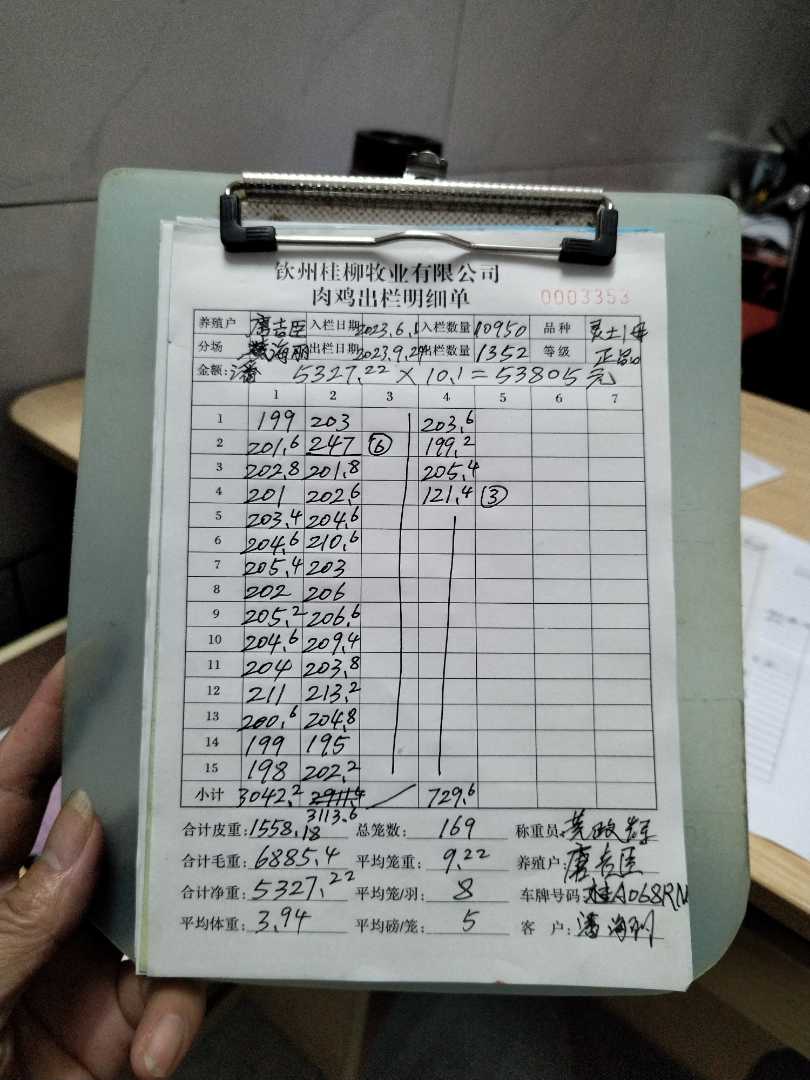 钦州桂柳牧业有限公司
肉鸡出栏明细单
0003353
养殖户 唐吉臣 入栏日期 2023.6.1 入栏数量 10950 品种 灵土1母
分场 海丽 出栏日期 2023.9.2 出栏数量 1352 等级 正品
金额: 潘 5327.22 × 10.1 = 53805元
1 2 3 4 5 6 7
1 199 203 203.6
2 201.6 247 ⑥ 199.2
3 202.8 201.8 205.4
4 201 202.6 121.4 ③
5 203.4 204.6
6 204.6 210.6
7 205.4 203
8 202 206
9 205.2 206.6
10 204.6 209.4
11 204 203.8
12 211 213.2
13 200.6 204.8
14 199 195
15 198 202.2
小计 3042.2 2911.4 729.6
3113.6
合计皮重: 1558.18 总笼数: 169 称重员: 黄
合计毛重: 6885.4 平均笼重: 9.22 养殖户: 唐吉臣
合计净重: 5327.22 平均笼/羽: 8 车牌号码: 桂A068RN
平均体重: 3.94 平均磅/笼: 5 客户: 潘海